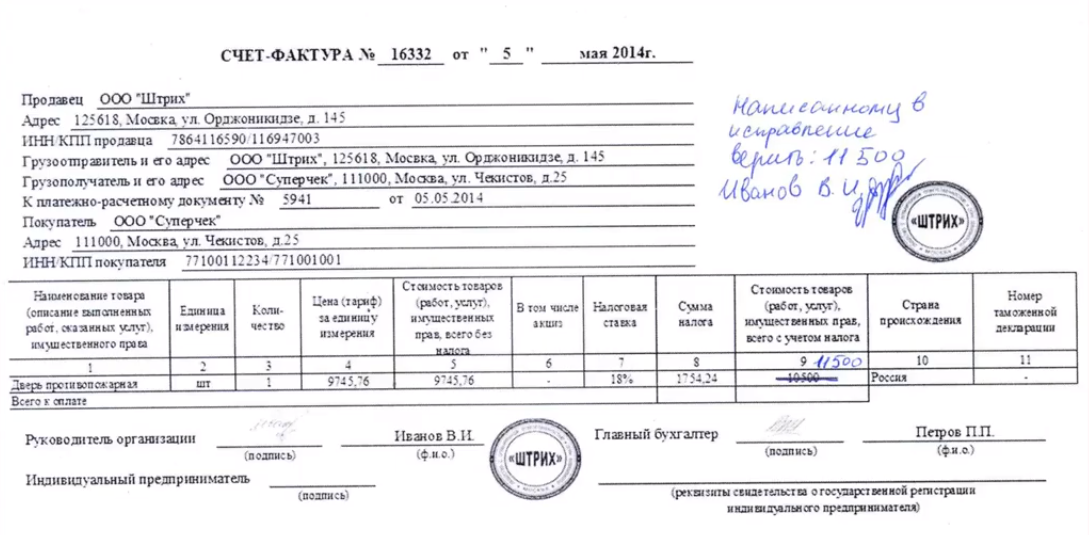 СЧЕТ-ФАКТУРА № 16332 от " 5 " мая 2014г.
Продавец ООО "Штрих"
Адрес 125618, Мосвка, ул. Орджоникидзе, д. 145
ИНН/КПП продавца 7864116590/116947003
Грузоотправитель и его адрес ООО "Штрих", 125618, Мосвка, ул. Орджоникидзе, д. 145
Грузополучатель и его адрес ООО "Суперчек", 111000, Москва, ул. Чекистов, д.25
К платежно-расчетному документу № 5941 от 05.05.2014
Покупатель ООО "Суперчек"
Адрес 111000, Москва, ул. Чекистов, д.25
ИНН/КПП покупателя 77100112234/771001001
Написанному в
исправление
верить: 11 500
Иванов В. И.
«ШТРИХ»
Наименование товара (описание выполненных работ, оказанных услуг), имущественного права
Единица измерения
Коли-чество
Цена (тариф) за единицу измерения
Стоимость товаров (работ, услуг), имущественных прав, всего без налога
В том числе акциз
Налоговая ставка
Сумма налога
Стоимость товаров (работ, услуг), имущественных прав, всего с учетом налога
Страна происхождения
Номер таможенной декларации
1 2 3 4 5 6 7 8 9 11500 10 11
Дверь противопожарная шт 1 9745,76 9745,76 - 18% 1754,24 10500 Россия -
Всего к оплате
Руководитель организации Иванов В.И. Главный бухгалтер Петров П.П.
(подпись) (ф.и.о.) (подпись) (ф.и.о.)
«ШТРИХ»
Индивидуальный предприниматель
(подпись) (реквизиты свидетельства о государственной регистрации
индивидуального предпринимателя)